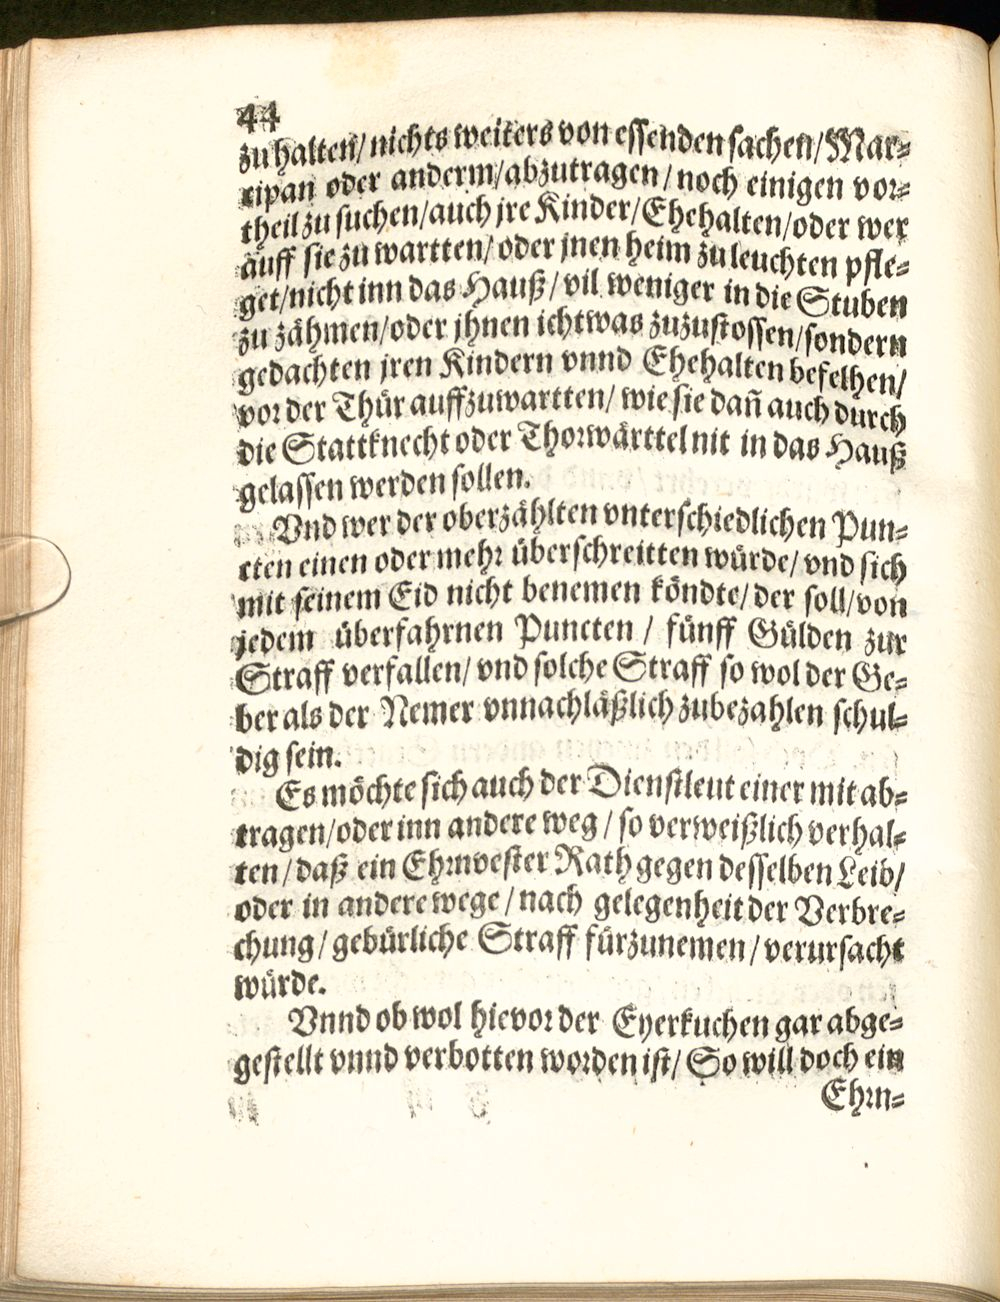 44
zu halten/nichts weiters von essenden sachen/Mar-
cipan oder anderm/abzutragen/noch einigen vor-
theil zu suchen/auch jre Kinder/Ehehalten/oder wer
auff sie zu wartten/oder jnen heim zu leuchten pfle-
get/nicht inn das Hauß/vil weniger in die Stuben
zu zähmen/oder jhnen ichtwas zuzustossen/sondern
gedachten jren Kindern vnnd Ehehalten befelhen/
vor der Thür auffzuwartten/wie sie dañ auch durch
die Stattknecht oder Thorwärttel nit in das Hauß
gelassen werden sollen.
Vnd wer der oberzählten vnterschiedlichen Pun-
cten einen oder mehr überschreitten würde/vnd sich
mit seinem Eid nicht benemen köndte/der soll/von
jedem überfahrnen Puncten/fünff Gülden zur
Straff verfallen/vnd solche Straff so wol der Ge-
ber als der Nemer vnnachläßlich zubezahlen schul-
dig sein.
Es möchte sich auch der Dienstleut einer mit ab-
tragen/oder inn andere weg/so verweißlich verhal-
ten/daß ein Ehrnvester Rath gegen desselben Leib/
oder in andere wege/nach gelegenheit der Verbre-
chung/gebürliche Straff fürzunemen/verursacht
würde.
Vnnd ob wol hievor der Eyerkuchen gar abge-
gestellt vnnd verbotten worden ist/So will doch ein
Ehrn-